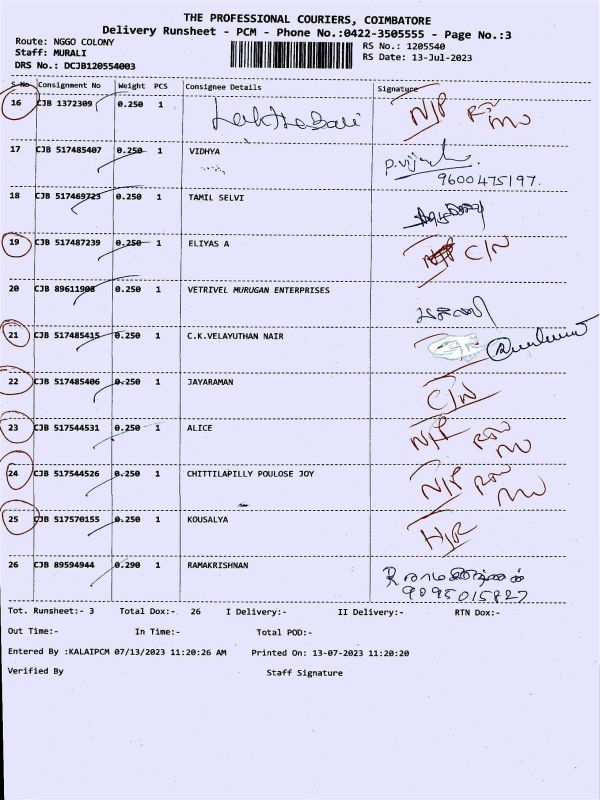 THE PROFESSIONAL COURIERS, COIMBATORE
Delivery Runsheet - PCM - Phone No.:0422-3505555 - Page No.:3
Route: NGGO COLONY
RS No.: 1205540
Staff: MURALI
RS Date: 13-Jul-2023
DRS No.: DCJB120554003
S No Consignment No Weight PCS Consignee Details Signature
16 CJB 1372309 0.250 1 N/P
17 CJB 517485407 0.250 1 VIDHYA
9600475197.
18 CJB 517469723 0.250 1 TAMIL SELVI
19 CJB 517487239 0.250 1 ELIYAS A N/P C/N
20 CJB 89611908 0.250 1 VETRIVEL MURUGAN ENTERPRISES
21 CJB 517485415 0.250 1 C.K.VELAYUTHAN NAIR
22 CJB 517485406 0.250 1 JAYARAMAN C/N
23 CJB 517544531 0.250 1 ALICE N/P
24 CJB 517544526 0.250 1 CHITTILAPILLY POULOSE JOY N/P
25 CJB 517570155 0.250 1 KOUSALYA
26 CJB 89594944 0.290 1 RAMAKRISHNAN
9095015827
Tot. Runsheet:- 3 Total Dox:- 26 I Delivery:- II Delivery:- RTN Dox:-
Out Time:- In Time:- Total POD:-
Entered By :KALAIPCM 07/13/2023 11:20:26 AM Printed On: 13-07-2023 11:20:20
Verified By Staff Signature